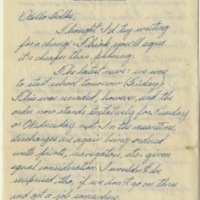 Hello Folks,
I thought I'd try writing
for a change. I think you'll agree
it's cheaper than phoning.
The latest news: we were
to start school tomorrow (Friday).
This was revoked, however, and the
order now stands tentatively for Tuesday
or Wednesday next. In the meantime,
discharges are again being ordered
with pilots, navigators, etc. given
equal consideration. I wouldn't be
surprised tho, if we don't go on thru
and get a job somewhere